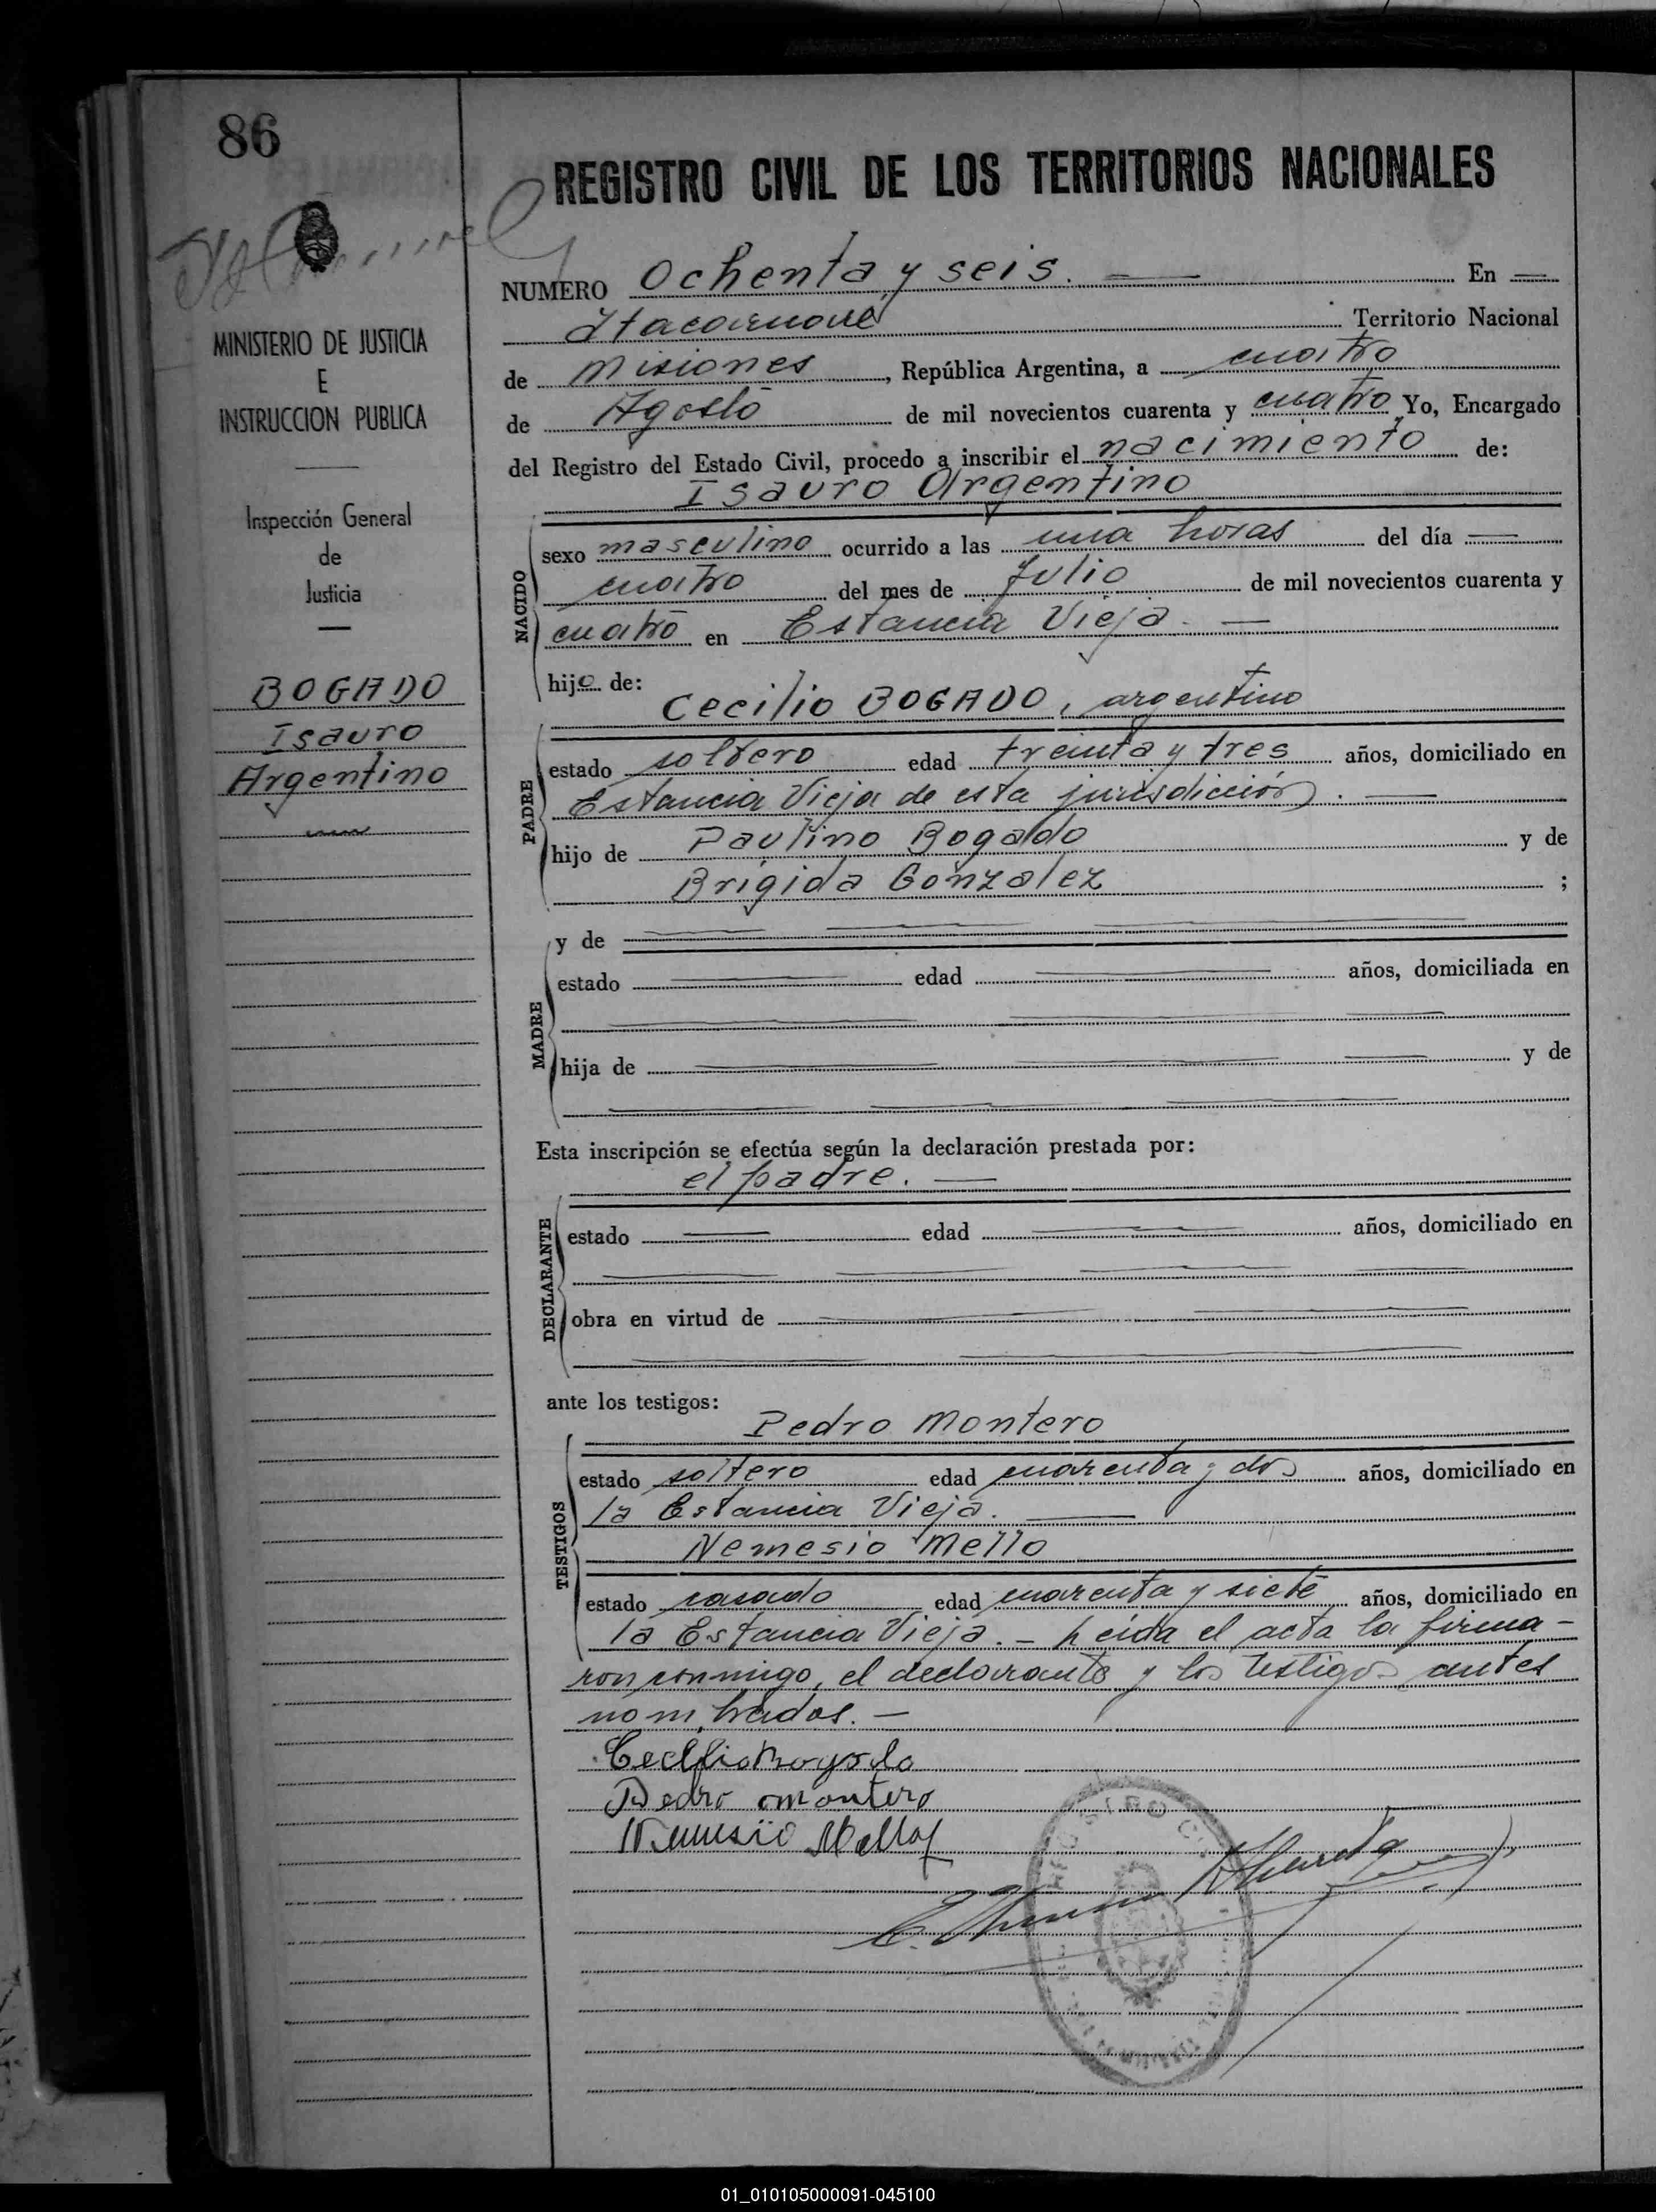 86
REGISTRO CIVIL DE LOS TERRITORIOS NACIONALES
NUMERO Ochenta y seis. En
Itacaruaré Territorio Nacional
de Misiones, República Argentina, a cuatro
de Agosto de mil novecientos cuarenta y cuatro Yo, Encargado
del Registro del Estado Civil, procedo a inscribir el nacimiento de:
Isauro Argentino
MINISTERIO DE JUSTICIA
E
INSTRUCCION PUBLICA
Inspección General
de
Justicia
BOGADO
Isauro
Argentino
NACIDO
sexo masculino ocurrido a las una horas del día
cuatro del mes de Julio de mil novecientos cuarenta y
cuatro en Estancia Vieja.
hijo de:
Cecilio BOGADO, argentino
PADRE
estado soltero edad treinta y tres años, domiciliado en
Estancia Vieja de esta jurisdicción.
hijo de Paulino Bogado y de
Brígida Gonzalez ;
y de
MADRE
estado edad años, domiciliada en
hija de y de
Esta inscripción se efectúa según la declaración prestada por:
el padre.
DECLARANTE
estado edad años, domiciliado en
obra en virtud de
ante los testigos:
Pedro Montero
TESTIGOS
estado soltero edad cuarenta y dos años, domiciliado en
la Estancia Vieja.
Nemesio Mello
estado casado edad cuarenta y siete años, domiciliado en
la Estancia Vieja. - Leída el acta la firma-
ron conmigo, el declarante y los testigos antes
nombrados. -
Cecilio Bogado
Pedro Montero
Nemesio Mello
REGISTRO
01_010105000091-045100